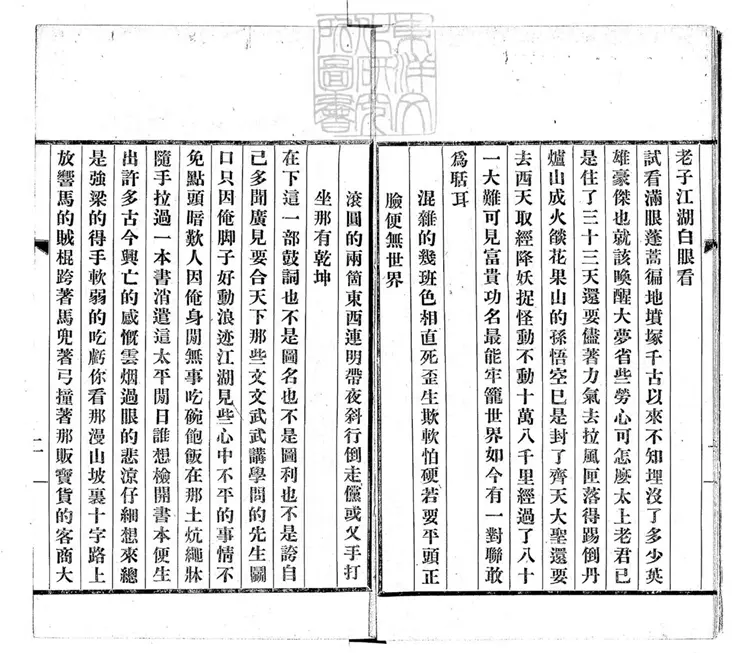 東洋文
化研究
所圖書
老子江湖白眼看
試看滿眼蓬蒿徧地墳塚千古以來不知埋沒了多少英
雄豪傑也就該喚醒大夢省些勞心可怎麼太上老君已
是住了三十三天還要儘著力氣去拉風匣落得踢倒丹
爐山成火燄花果山的孫悟空已是封了齊天大聖還要
去西天取經降妖捉怪動不動十萬八千里經過了八十
一大難可見富貴功名最能牢籠世界如今有一對聯敢
為聒耳
混雜的幾班色相直死歪生欺軟怕硬若要平頭正
臉便無世界
滾圓的兩箇東西連明帶夜斜行倒走儻或父手打
坐那有乾坤
在下這一部鼓詞也不是圖名也不是圖利也不是誇自
己多聞廣見要合天下那些文文武武講學問的先生鬭
口只因俺脚子好動浪迹江湖見些心中不平的事情不
免點頭暗歎人因俺身閒無事吃碗飽飯在那土炕繩牀
隨手拉過一本書消遣這太平閒日誰想檢開書本便生
出許多古今興亡的感慨雲烟過眼的悲涼仔細想來總
是強梁的得手軟弱的吃虧你看那漫山坡裏十字路上
放響馬的賊棍跨著馬兜著弓撞著那販寶貨的客商大
二 一